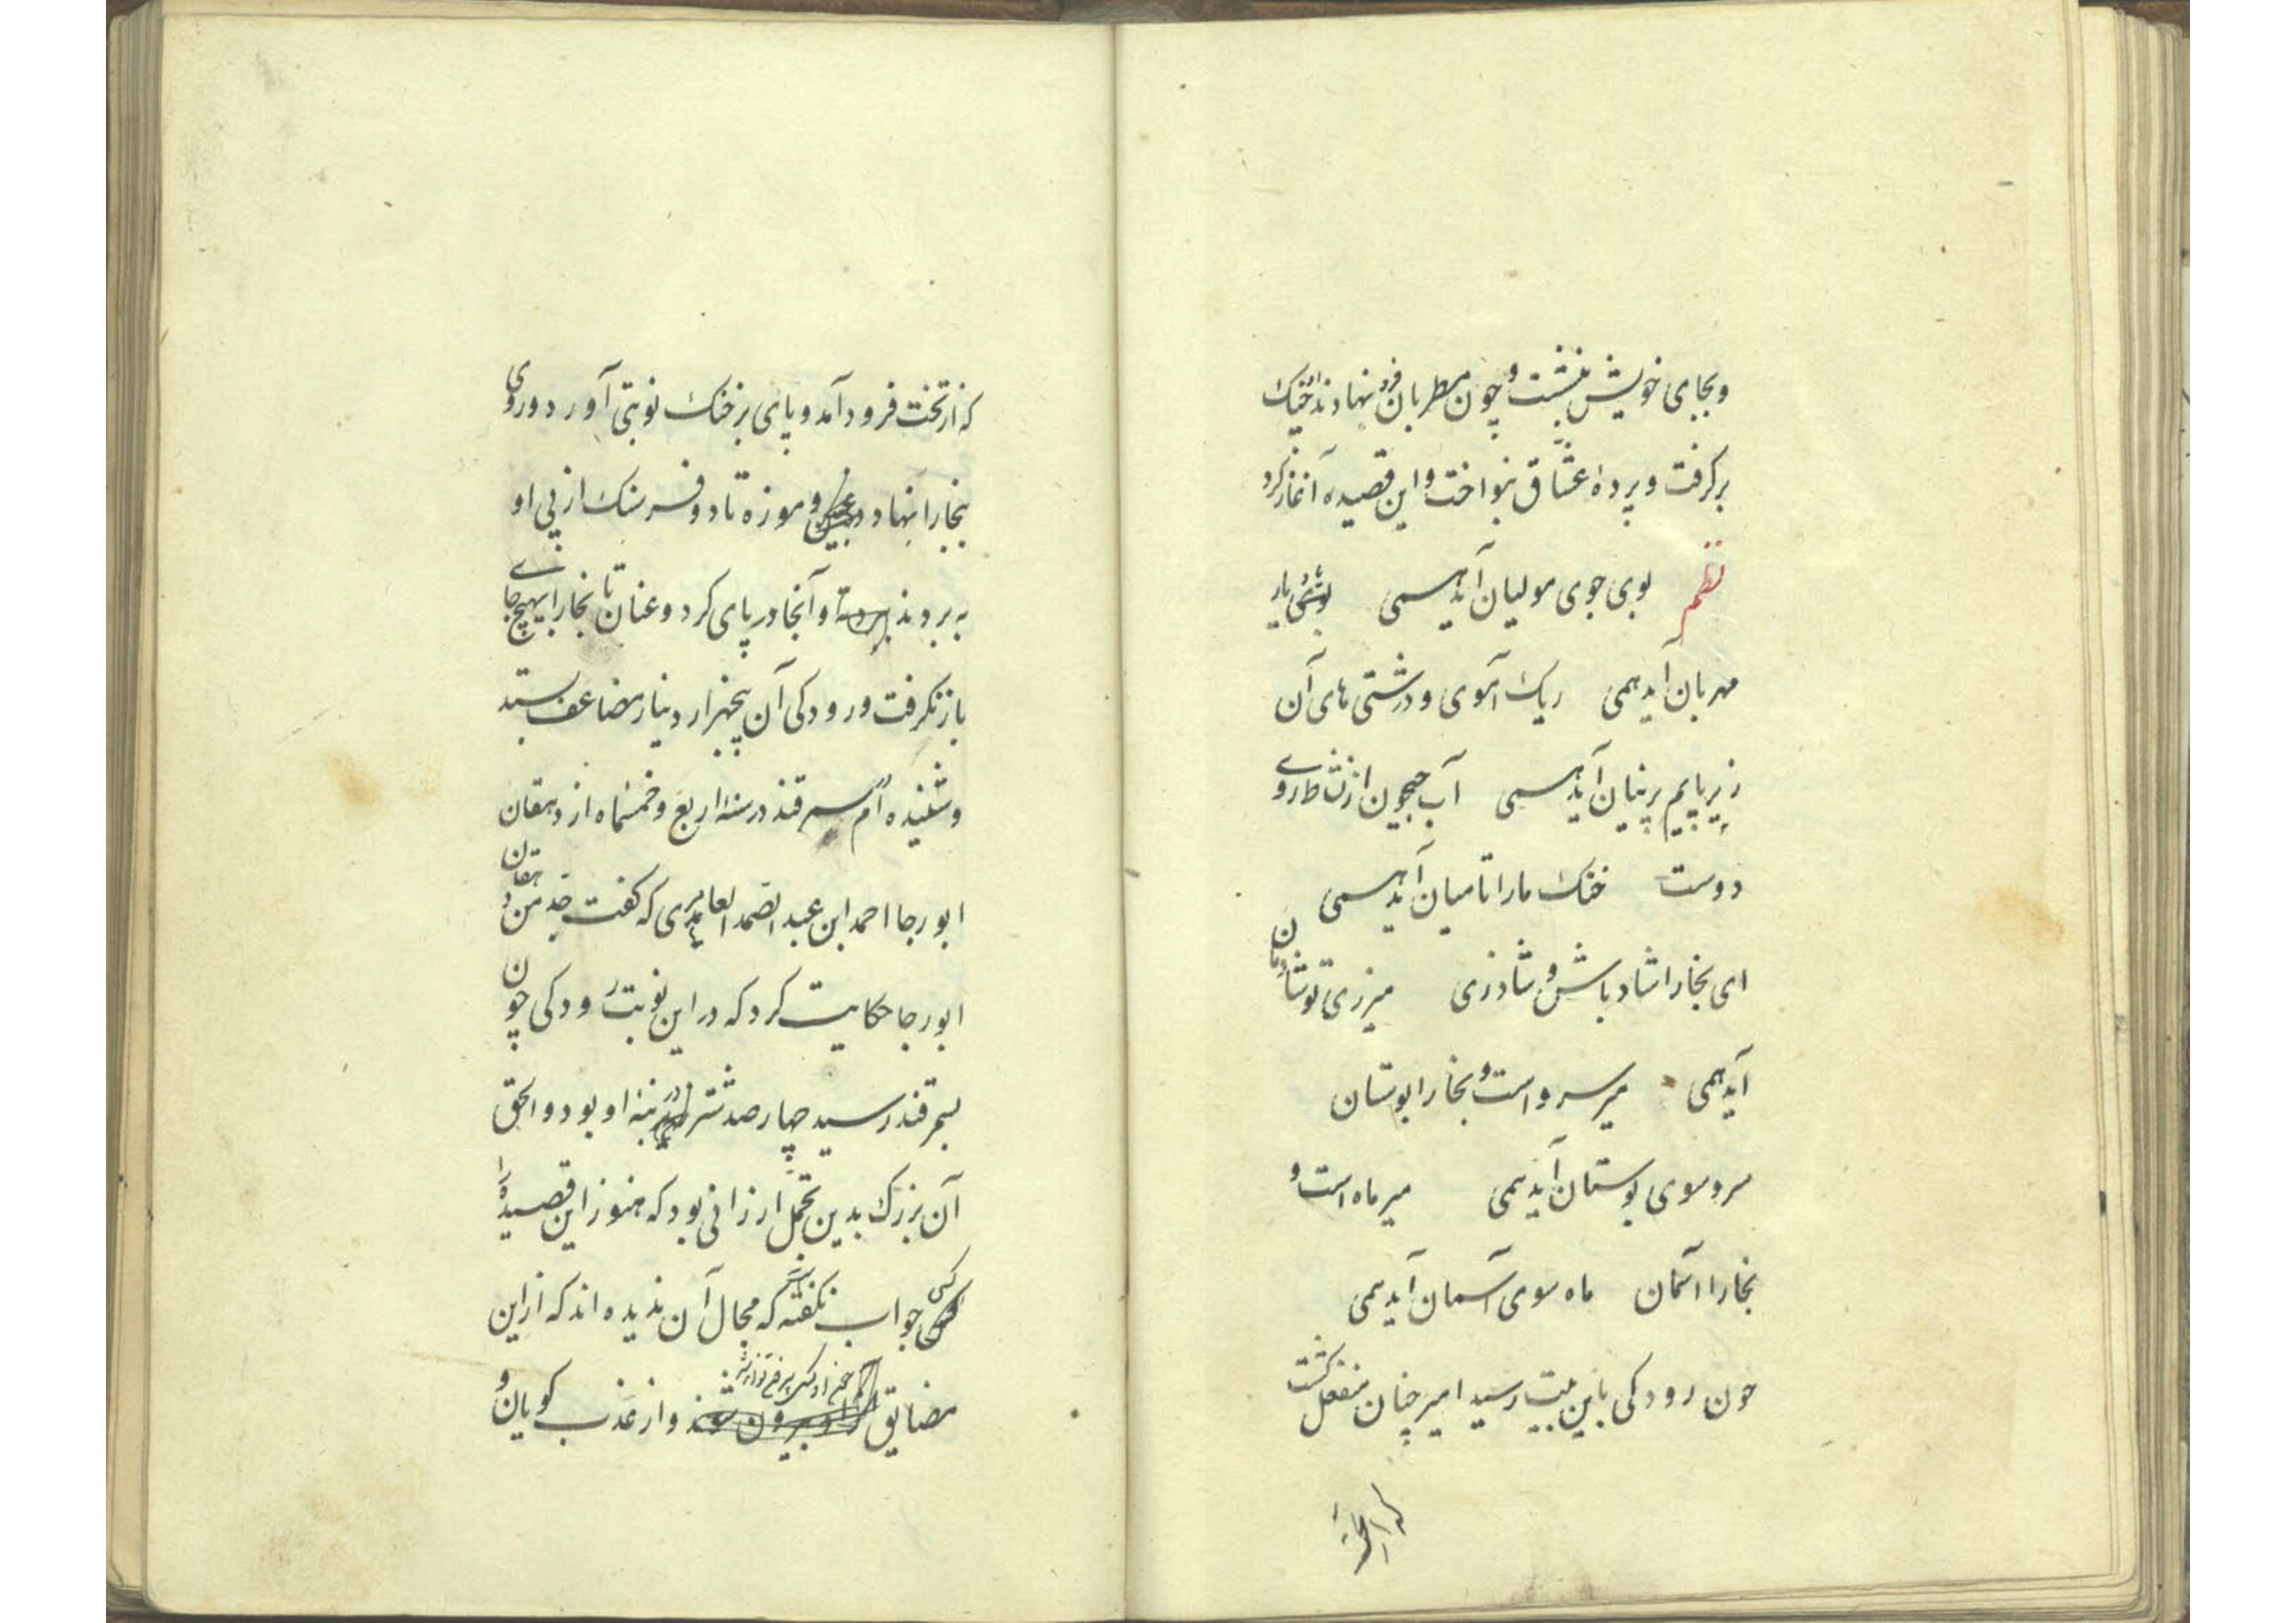 وبجای خویش بنشست و چون مطربان فرو نهادند او چنک
برگرفت و پردهٔ عشّاق بنواخت و این قصیده آغاز کرد
نظم بوی جوی مولیان آید همی بوی یار
مهربان آید همی ریک آموی و درشتی های آن
زیر پایم پرنیان آید همی آب جیحون از نشاط روے
دوست خنک ما را تا میان آید همی
ای بخارا شاد باش و شاد زی میر زی تو شادمان
آید همی میر سرو است و بخارا بوستان
سرو سوی بوستان آید همی میر ماه است و
بخارا آسمان ماه سوی آسمان آید همی
چون رودکی باین بیت رسید امیر چنان منفعل گشت
که از تخت فرود آمد و پای بر خنک نوبتی آورد و روی
ببخارا نهاد و موزه تا دو فرسنک از پی او
به بردند و آنجا در پای کرد و عنان تا بخارا بهیچ جاے
باز نگرفت و رودکی آن پنجهزار دینار مضاعف بستد
و شنیده ام بسمرقند در سنه اربع و خمسماه از دهقان
ابو رجا احمد ابن عبد الصّمد العابدی که گفت جد من دهقان
ابو رجا حکایت کرد که در این نوبت رودکی چون
بسمرقند رسید چهار صد شتر در بنهٔ او بود و الحق
آن بزرک بدین تجمّل ارزانی بود که هنوز این قصیده را
کسی جواب نگفته است که مجال آن ندیده اند که از این
مضایق و از عذب کویان و